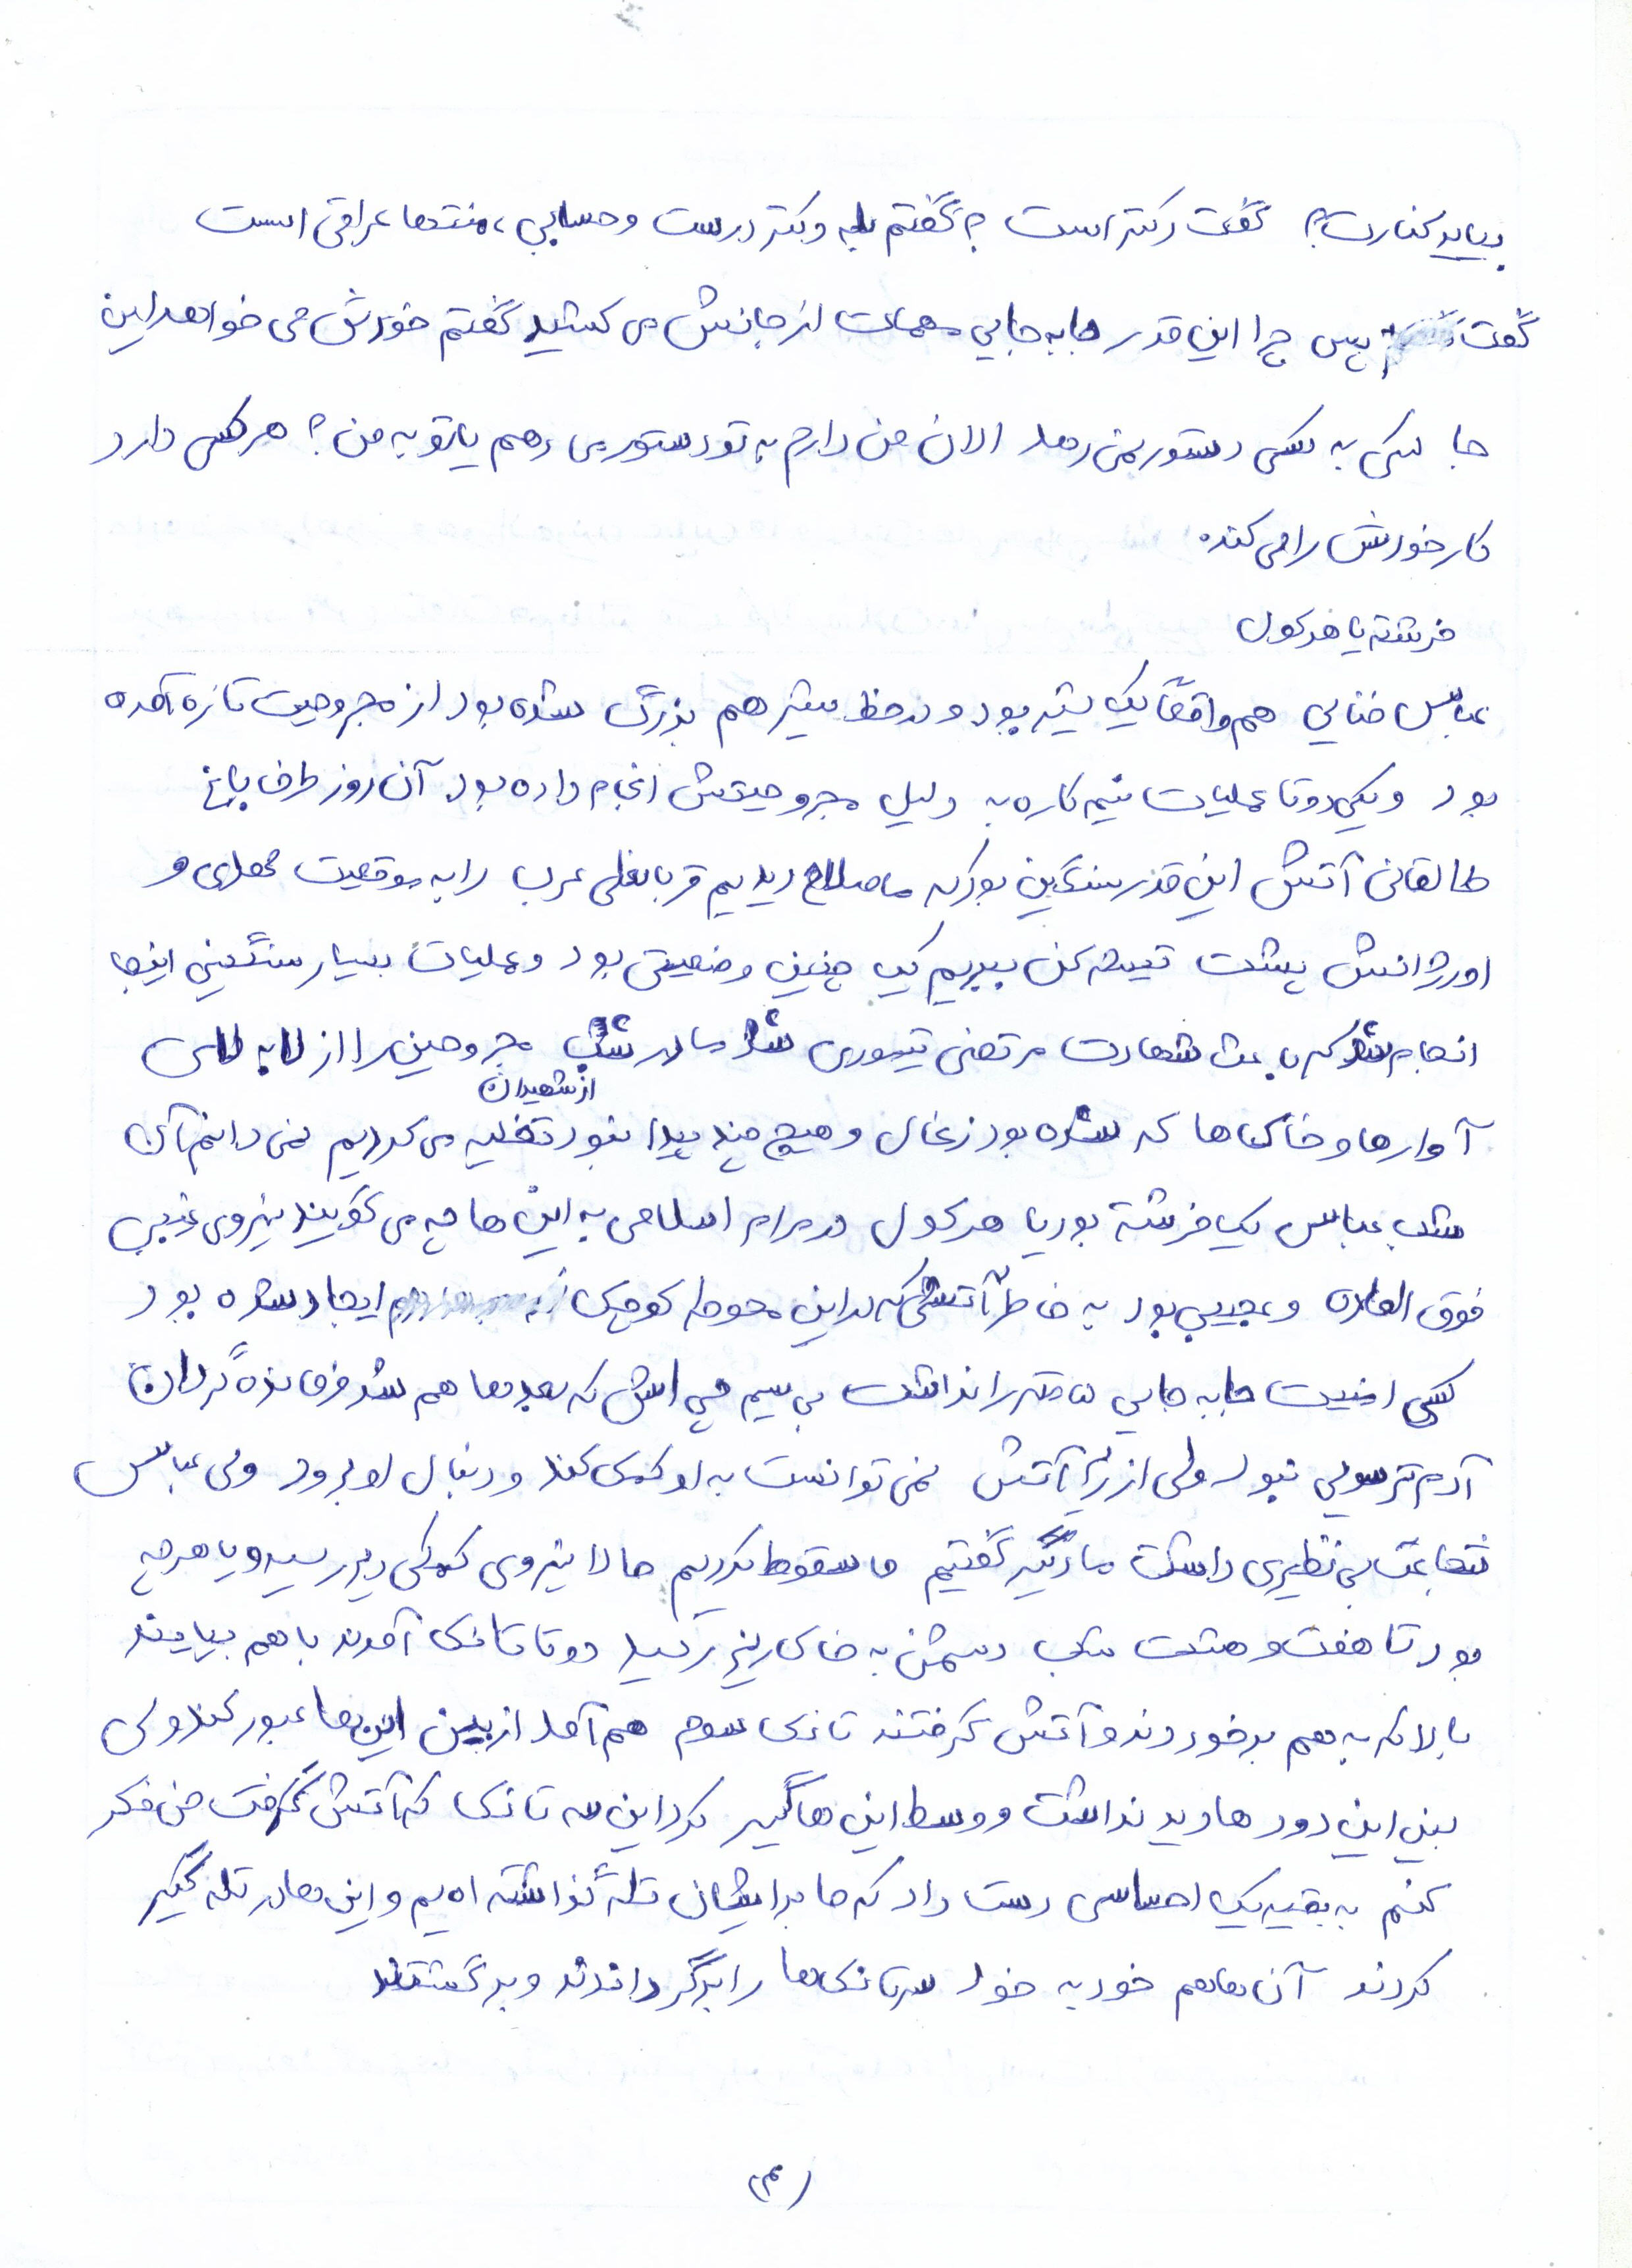 بیاید کنارت؟ گفت دکتر است؟ گفتم بله دکتر درست و حسابی، منتها عراقی است
گفت پس چرا این قدر جابه جایی مهمات از جانش می کشید گفتم خودش می خواهد این
جا کسی به کسی دستور نمی دهد الان من دارم به تو دستور می دهم یا تو به من؟ هر کس دارد
کار خودش را می کند.
فرشته یا هرکول
عباس ضنایی هم واقعاً یک بود و در خط هم بزرگ شده بود از مجروحیت تازه آمده
بود و یکی دوتا عملیات نیم کاره به دلیل مجروحیتش انجام داده بود. آن روز طرف باغ
طالقانی آتش این قدر سنگین بود که ما صلاح دیدیم قربانعلی عرب را به موقعیت و
اورژانس پشت بریم یک چنین وضعیتی بود و عملیات بسیار سنگینی اینجا
انجام شد که باعث شهادت مرتضی تیموری شد ما در شب مجروحین را از لابه لای
از شهیدان
آوارها و خاکها که شده بود زغال و هیچ چیز پیدا نبود تخلیه می کردیم نمی دانم آن
شب عباس یک فرشته بود یا هرکول در مرام اسلامی به این ها چه می گویند نیروی غیبی
فوق العاده و عجیبی بود به خاطر آتشی که در این محوطه کوچک ایجاد شده بود
کسی امنیت جابه جایی را نداشت بی سیم چی اش که بعدها هم شد فرمانده گردان
آدم ترسویی نبود ولی از زیر آتش نمی توانست به او کمک کند و دنبال او برود ولی عباس
شجاعت بی نظیری داشت ما دیگر گفتیم ما سقوط کردیم حالا نیروی کمکی دیر رسید و یا هر چه
بود تا هفت و هشت شب دشمن به خاک ریز رسید دوتا تانک آمدند با هم بیایند
بالا که به هم برخوردند و آتش گرفتند تانک سوم هم آمد از بین این ها عبور کند ولی
بین این دود ها دید نداشت و وسط این ها گیر کرد این سه تانک که آتش گرفت من فکر
کنم به بقیه یک احساسی دست داد که ما برایشان تله گذاشته ایم و این ها در تله گیر
کردند آن ها هم خود به خود سر تانک ها را برگرداندند و برگشتند